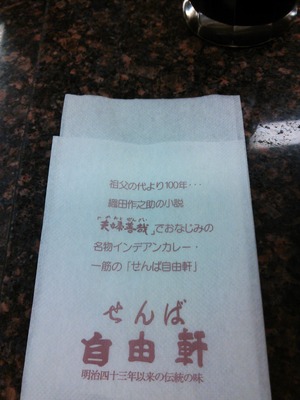 祖父の代より100年・・・
織田作之助の小説
「夫婦善哉」でおなじみの
名物インデアンカレー・
一筋の「せんば自由軒」
せんば
自由軒
明治四十三年以来の伝統の味